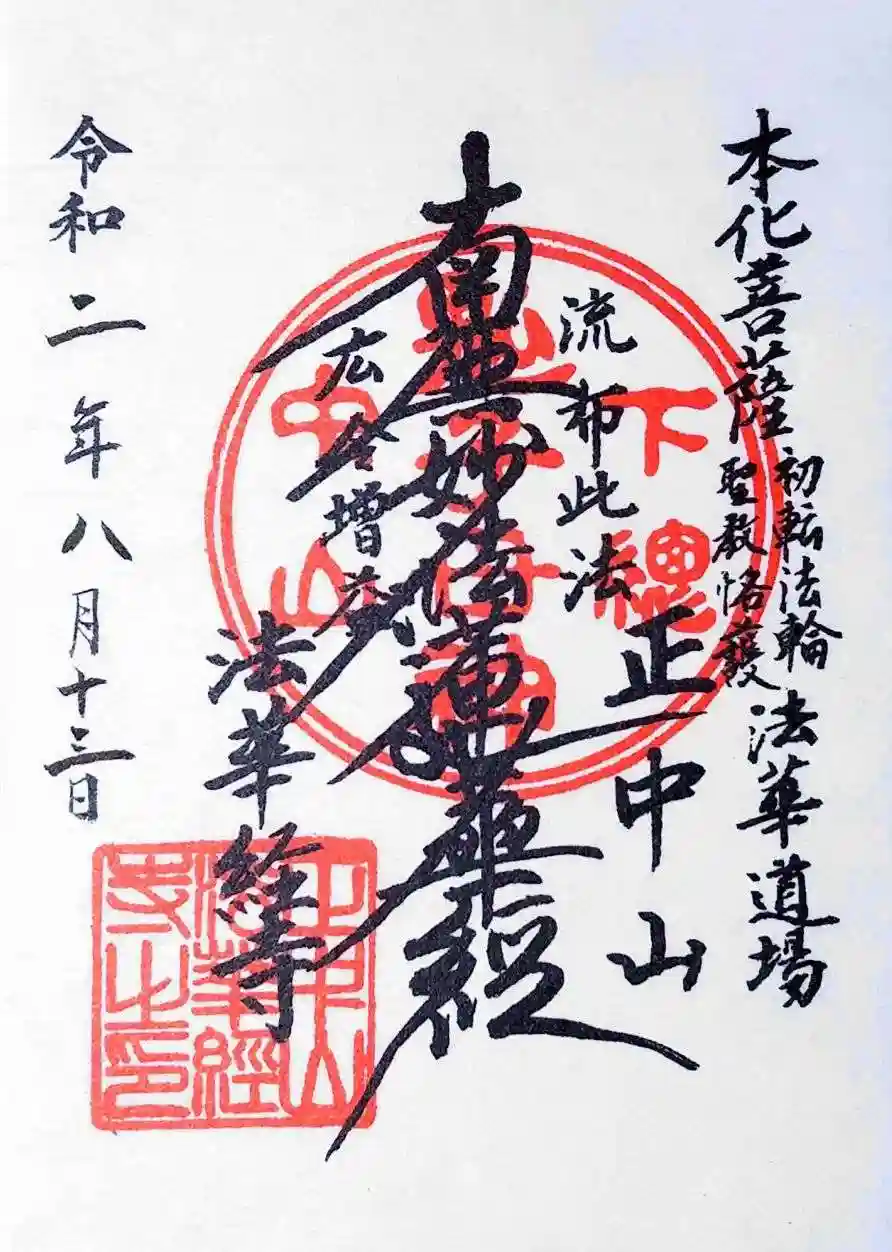 本化菩薩
初転法輪
聖教格護
法華道場
正中山
流布此法
南無妙法蓮華経
広令増益
法華経寺
令和二年八月十三日
下總
中山
正中山
法華經
寺之印